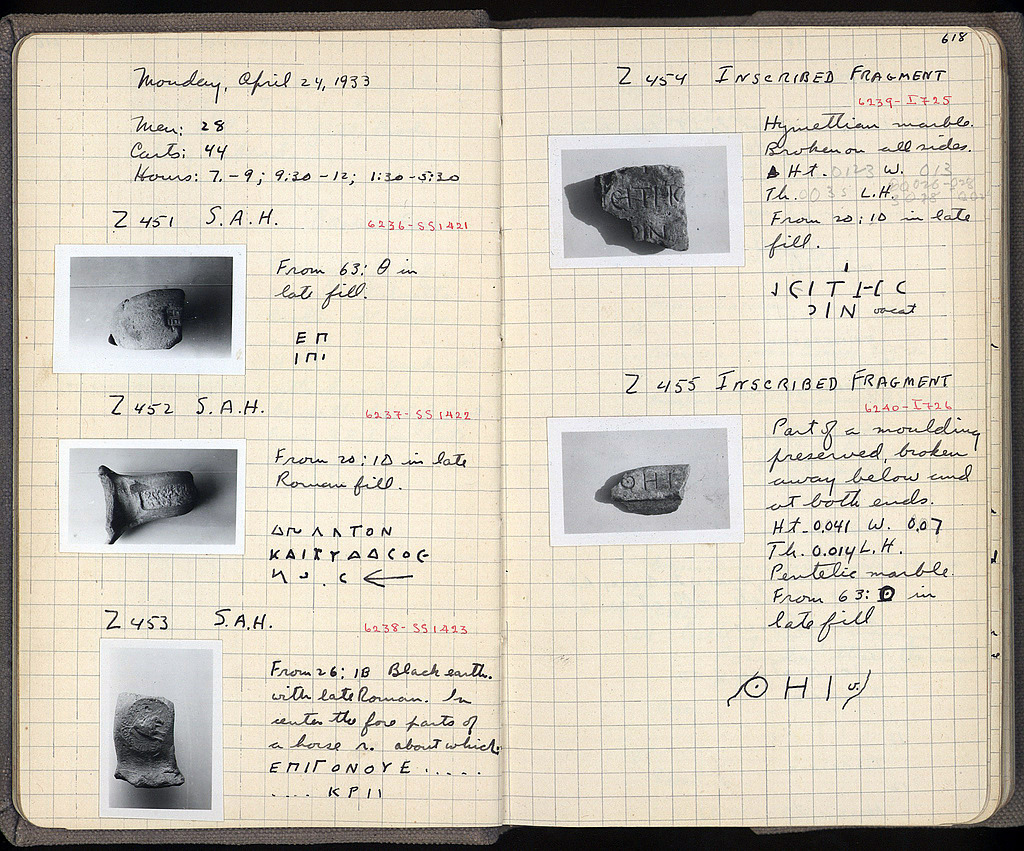 Monday, April 24, 1933
Men: 28
Carts: 44
Hours: 7.-9; 9:30-12; 1:30-5:30
Z 451 S.A.H.
6236-SS1421
From 63: Θ in
late fill.
ΕΠ
ΙΠΙ
Z 452 S.A.H.
6237-SS1422
From 20: ΙΔ in late
Roman fill.
ΛΤΟΝ
Z 453 S.A.H.
6238-SS1423
From 26: ΙΒ Black earth.
with late Roman. In
center the fore parts of
a horse r. about which:
ΕΠΙΓΟΝΟΥΕ .....
.... ΚΡΙΙ
618
Z 454 INSCRIBED FRAGMENT
6239-I725
Hymettian marble.
Broken on all sides.
Ht. 0.123 W. 0.13
Th. 0.035 L.H.
From 20: ΙΔ in late
fill.
ΙЄΙΤΗC
ΙΝ vacat
Z 455 INSCRIBED FRAGMENT
6240-I726
Part of a moulding
preserved, broken
away below and
at both ends.
Ht. 0.041 W. 0.07
Th. 0.014 L.H.
Pentelic marble.
From 63: in
late fill
ΘΗΙ